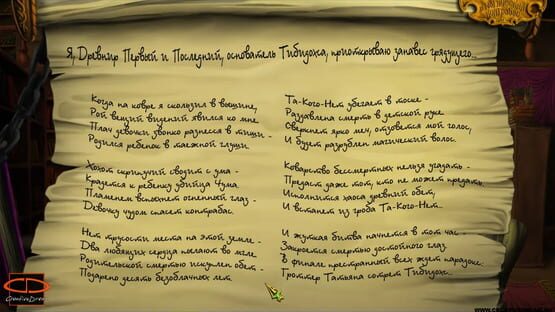 Я, Древнир Первый и Последний, основатель Тибидохса, приоткрываю занавес грядущего...
Когда на ковре я скользил в вышине,
Рой вещих видений явился ко мне.
Плач девочки звонко разнесся в тиши -
Родился ребенок в таежной глуши.
Хохот скрипучий сводит с ума -
Крадется к ребенку убийца Чума.
Пламенем вспыхнет огненный глаз -
Девочку чудом спасет контрабас.
Нет трусости места на этой земле -
Два любящих сердца пылают во мгле.
Родительской смертью искуплен обет -
Подарено десять безоблачных лет.
Та-Кого-Нет убегает в тоске -
Раздавлена смерть в детской руке.
Сверкнет ярко меч, отзовется мой голос,
И будет разрублен магический волос.
Коварство бессмертных нельзя угадать -
Предаст даже тот, кто не может предать.
Исполнится хаоса древний обет,
И встанет из гроба Та-Кого-Нет.
И жуткая битва начнется в тот час -
Закроется смертью достойного глаз.
В финале престранный всех ждет парадокс:
Гроттер Татьяна сотрет Тибидохс...
CD
CreativeDream